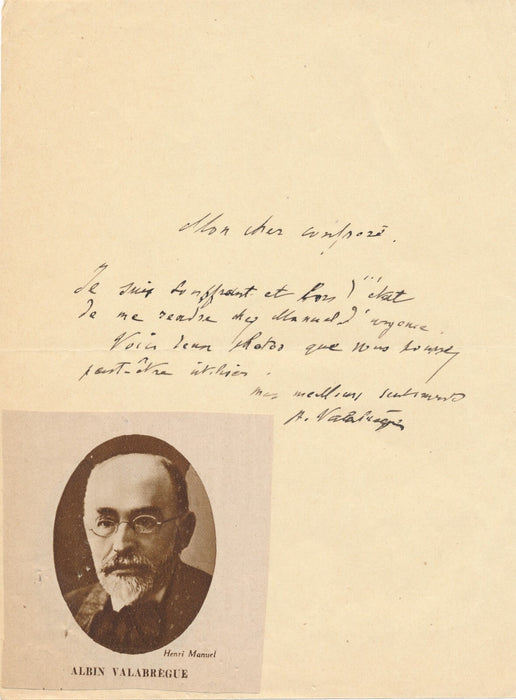 Mon cher confrère.
Je suis souffrant et hors d'état
de me rendre chez Manuel d'urgence.
Voici deux photos que vous pourrez
peut-être utiliser.
mes meilleurs sentiments
A. Valabrègue
Henri Manuel
ALBIN VALABRÈGUE